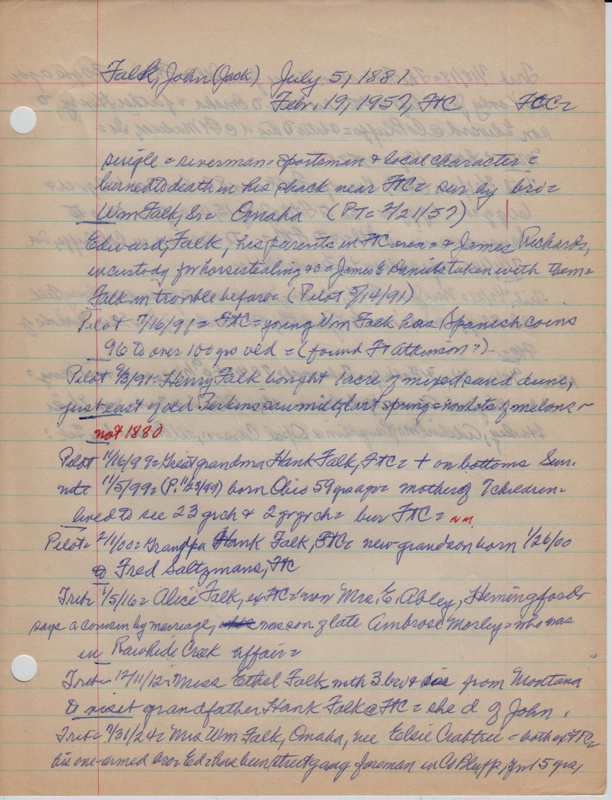 Falk, John (Jack) July 5, 1881
Feb. 19, 1957, FtC FtCC=
single = riverman = sportsman & local character =
burned to death in his shack near FtC = sur by bro =
Wm Falk, Sr = Omaha (PT = 2/21/57)
Edward, Falk, his parents in FtC area = & James Richards,
in custody for horse stealing &c = James E Daniels taken with them =
Falk in trouble before = (Pilot 5/14/91)
Pilot 7/16/91 = FtC = young Wm Falk has Spanish coins
96 to over 100 yrs old = (found Ft Atkinson?) -
Pilot 9/3/91 = Henry Falk bought 1 acre of mixed sand dune,
just east of old Perkins sawmill last spring = now lots of melons -
not 1880
Pilot 11/16/99 = Great grandma Hank Falk, FtC = + on bottoms Sun.
nt = 11/5/99 = (P. 11/23/99) born Ohio 59 yrs ago = mother of 7 children =
lived to see 23 grch & 2 grgrch = bur FtC = nm
Pilot = 2/1/00 = Grandpa Hank Falk, FtC = new grandson born 1/26/00
@ Fred Saltzmans, FtC
Trib = 1/5/16 = Alice Falk, ex FtC = now Mrs. E. Abley, Hemingford
says a cousin by marriage, was son of late Ambrose Morley = who was
in Rawhide Creek affair =
Trib = 12/11/12 = Miss Ethel Falk with 3 bro & sis from Montana
to visit grandfather Hank Falk @ FtC = she d of John.
Trib = 7/31/24 = Mrs Wm Falk, Omaha, nee Elsie Crabtree = both ex FtC =
his one-armed bro Ed = has been street gang foreman in Co Bluffs, for 15 yrs,